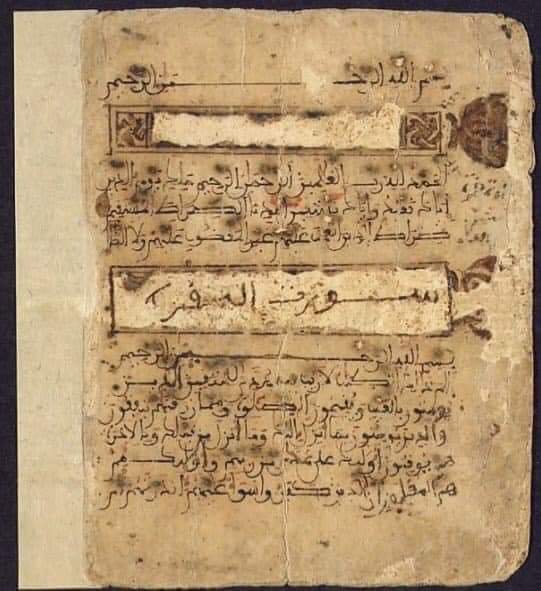 بسم الله الرحمن الرحيم
الحمد لله رب العلمين الرحمن الرحيم ملك يوم الدين
اياك نعبد واياك نستعين اهدنا الصراط المستقيم
صراط الذين انعمت عليهم غير المغضوب عليهم ولا الضا
سورة البقرة
بسم الله الرحمن الرحيم
الم ذلك الكتب لا ريب فيه هدى للمتقين الذين
يومنون بالغيب ويقيمون الصلوة ومما رزقنهم ينفقون
والذين يومنون بما انزل اليك وما انزل من قبلك وبالاخرة
هم يوقنون اوليك على هدى من ربهم واوليك
هم المفلحون ان الذين كفروا سوا عليهم انذرتهم ام